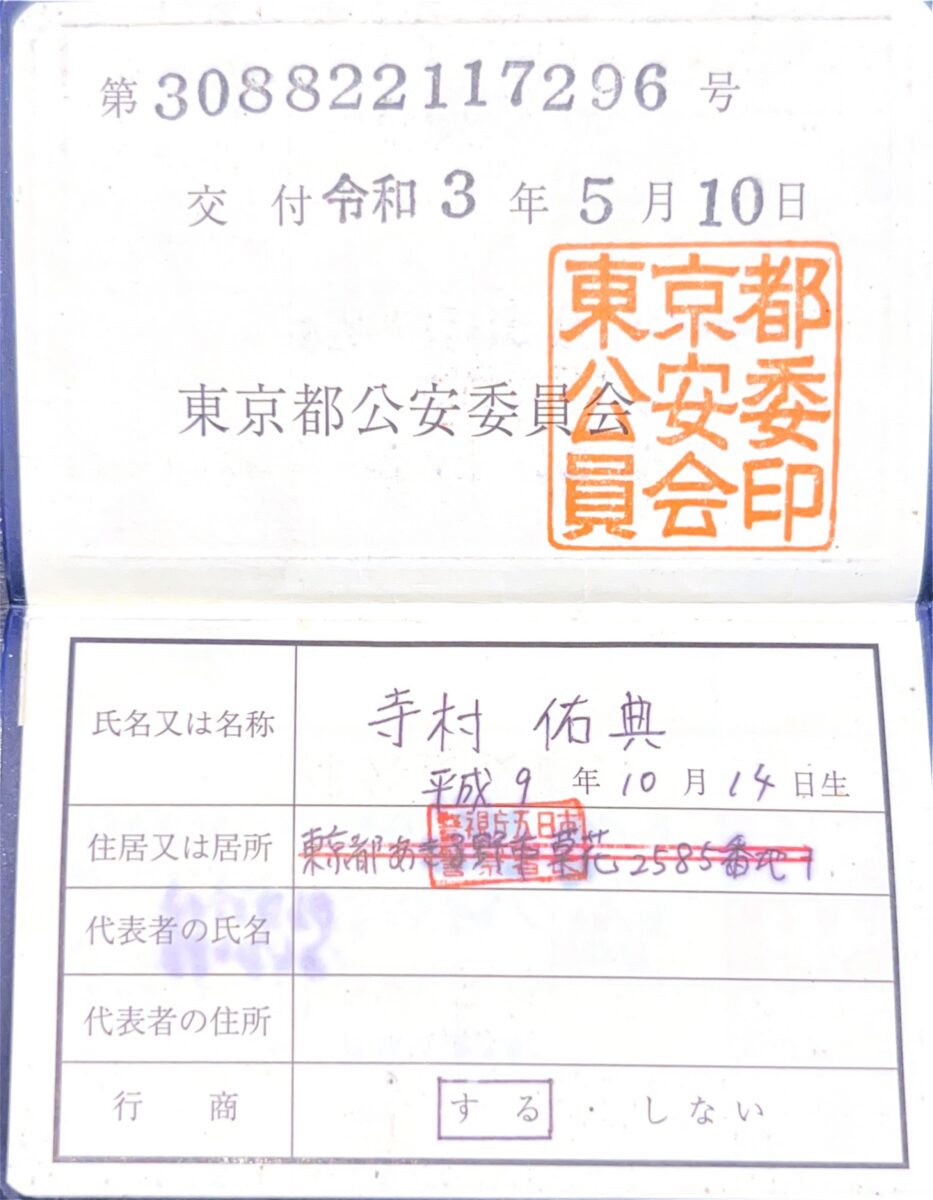 第308822117296号
交 付 令和 3 年 5 月 10 日
東京都公安委員会
東京都
公安委
員会印
氏名又は名称 寺村 佑典
平成 9 年 10 月 14 日生
住居又は居所 東京都あきる野市草花2585番地1
代表者の氏名
代表者の住所
行 商 する ・ しない